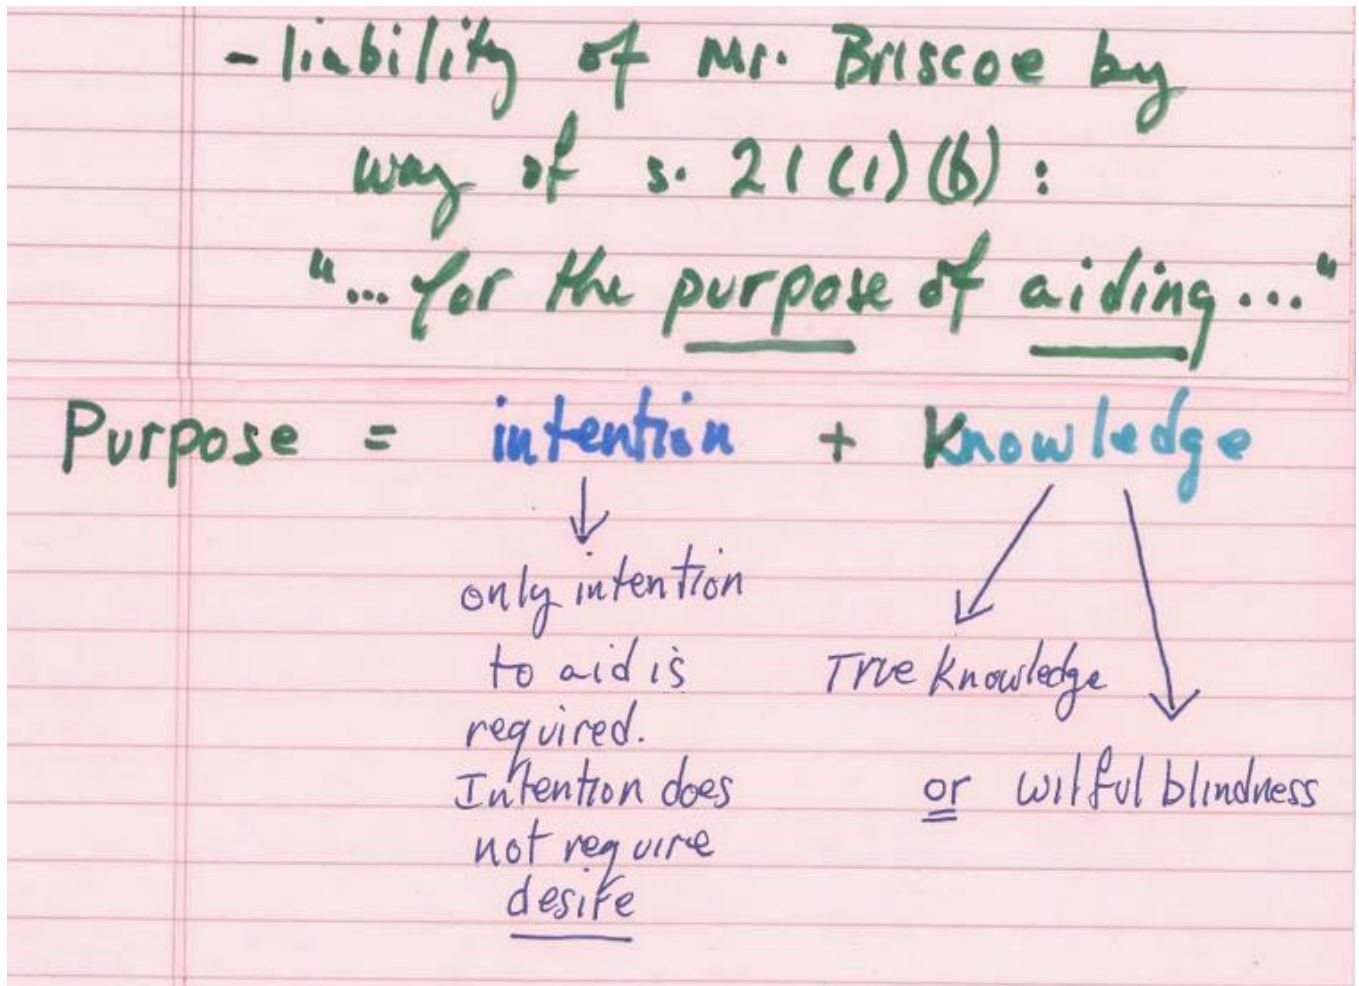 - liability of Mr. Briscoe by
way of s. 21(1)(b):
"... for the purpose of aiding..."
Purpose = intention + Knowledge
only intention
to aid is
required.
Intention does
not require
desire
True Knowledge
or wilful blindness